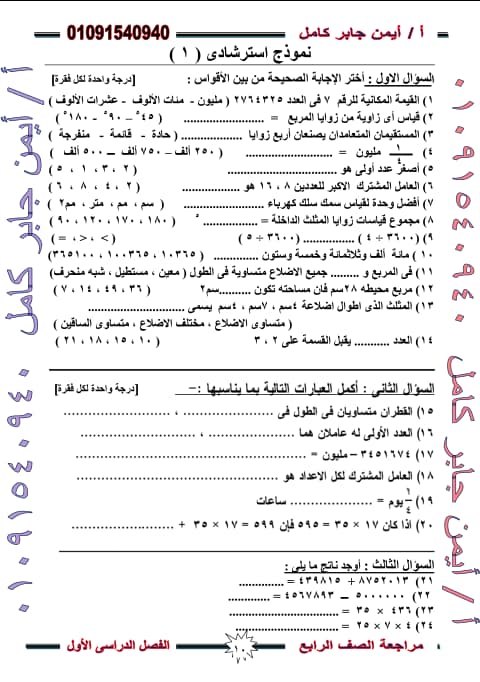 أ / أيمن جابر كامل 01091540940
نموذج استرشادى ( ١ )
السؤال الاول : أختر الإجابة الصحيحة من بين الأقواس : [درجة واحدة لكل فقرة]
١) القيمة المكانية للرقم ٧ فى العدد ٢٧٦٤٣٢٥ ( مليون - مئات الألوف - عشرات الألوف )
٢) قياس أى زاوية من زوايا المربع = ........................ ( ٤٥ ° – ٩٠ ° - ١٨٠ ° )
٣) المستقيمان المتعامدان يصنعان أربع زوايا .................. ( حادة - قائمة - منفرجة )
٤) ١/٤ مليون = ........................ ( ٢٥٠ ألف – ٧٥٠ ألف – ٥٠٠ ألف )
٥) أصغر عدد أولى هو .................. ( ٢ ، ٣ ، ١ ، ٥ )
٦) العامل المشترك الاكبر للعددين ٨ ، ١٦ هو .................. ( ٢ ، ٤ ، ٨ ، ٦ )
٧) أفضل وحدة لقياس سمك سلك كهرباء .................. ( سم ، مم ، متر ، مم٢ )
٨) مجموع قياسات زوايا المثلث الداخلة = ............ ° ( ١٨٠ ، ١٧٠ ، ١٢٠ ، ٩٠ )
٩) (٣٦٠٠ ÷ ٤ ) ................ (٣٦٠٠ ÷ ٥ ) ( > ، < ، = )
١٠) مائة ألف وثلاثمائة وخمسة وستون .............. ( ١٠٣٦٥ ، ١٠٠٣٦٥ ، ٣٦٥١٠٠ )
١١) فى المربع و ......... جميع الاضلاع متساوية فى الطول ( معين ، مستطيل ، شبه منحرف)
١٢) مربع محيطه ٢٨سم فان مساحته تكون ..........سم٢ ( ٣٦ ، ٤٩ ، ١٤ ، ٧ )
١٣) المثلث الذى اطوال اضلاعة ٤سم ، ٧سم ، ٤سم يسمى ............................
( متساوى الاضلاع ، مختلف الاضلاع ، متساوى الساقين )
١٤) العدد ........... يقبل القسمة على ٢ ، ٣ ( ١٠ ، ١٥ ، ١٨ ، ٢١ )
السؤال الثانى : أكمل العبارات التالية بما يناسبها :- [درجة واحدة لكل فقرة]
١٥) القطران متساويان فى الطول فى ........................ ، ........................
١٦) العدد الأولى له عاملان هما ........................ ، ........................
١٧) ٣٤٥١٦٧٤ – مليون = ........................
١٨) العامل المشترك لكل الاعداد هو ........................
١٩) ١/٤ يوم = .................. ساعات
٢٠) اذا كان ١٧ × ٣٥ = ٥٩٥ فإن ٥٩٩ = ١٧ × ٣٥ + ........................
السؤال الثالث : أوجد ناتج ما يلى :
٢١) ٨٧٥٢٠١٣ + ٤٣٩٨١٥ = ..............
٢٢) ٥٠٠٠٠٠٠ – ٤٥٦٧٨٩٣ = ..............
٢٣) ٤٣٦ × ٣٥ = ........................
٢٤) ٤ × ٧ × ٢٥ = ........................
مراجعة الصف الرابع ١٠ الفصل الدراسى الأول
أ / أيمن جابر كامل ٠١٠٩١٥٤٠٩٤٠
٠١٠٩١٥٤٠٩٤٠ أ / أيمن جابر كامل